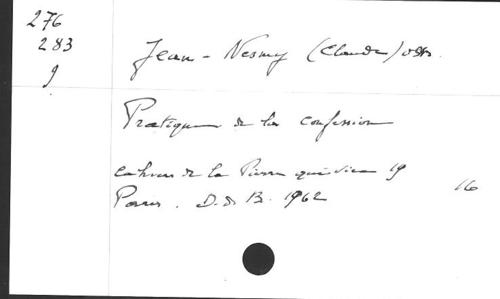 276
283
9
Jean-Nesmy (Claude) osb.
Pratique de la confession
Cahiers de la Pierre qui vire 19
Paris. D.d.B. 1962
16